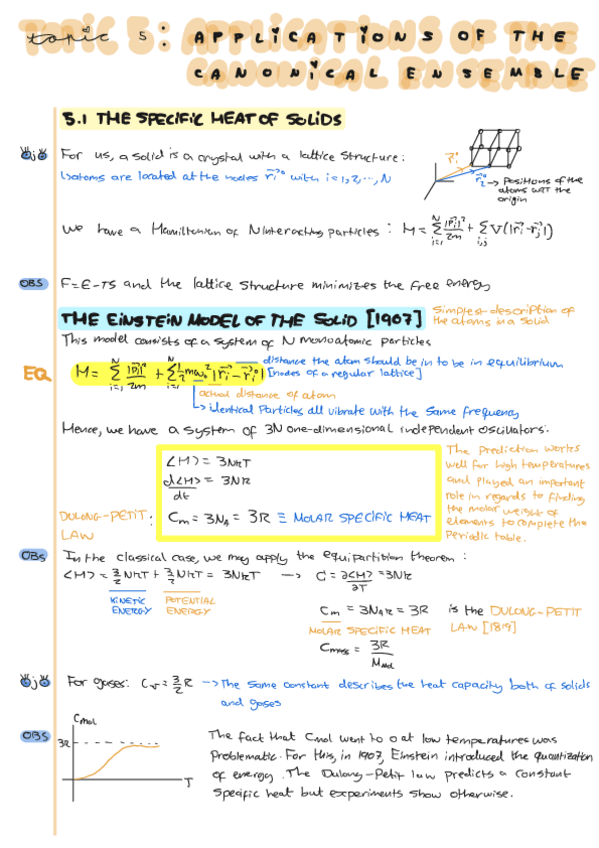 topic 5: APPLICATIONS OF THE
CANONICAL ENSEMBLE
5.1 THE SPECIFIC HEAT OF SOLIDS
Ojo For us, a solid is a crystal with a lattice structure:
↳ atoms are located at the nodes r⃗ᵢ⁰ with i=1,2,...,N
r⃗₂⁰ → positions of the atoms WRT the origin
We have a Hamiltonian of N interacting particles: H = Σᵢ₌₁ᴺ |p⃗ᵢ|²/2m + Σᵢ,ⱼ V(|r⃗ᵢ-r⃗ⱼ|)
OBS F=E-TS and the lattice structure minimizes the free energy
THE EINSTEIN MODEL OF THE SOLID [1907]
Simplest description of the atoms in a solid
This model consists of a system of N monoatomic particles
EQ H = Σᵢ₌₁ᴺ |p⃗ᵢ|²/2m + Σᵢ₌₁ᴺ ½mω₀²|r⃗ᵢ-r⃗ᵢ⁰|
distance the atom should be in to be in equilibrium
[nodes of a regular lattice]
actual distance of atom
↳ identical particles all vibrate with the same frequency
Hence, we have a system of 3N one-dimensional independent oscillators.
⟨H⟩ = 3NkT
d⟨H⟩/dt = 3NR
DULONG-PETIT LAW: Cm = 3NA = 3R ≡ MOLAR SPECIFIC HEAT
The prediction works
well for high temperatures
and played an important
role in regards to finding
the molar weight of
elements to complete the
periodic table.
OBS In the classical case, we may apply the equipartition theorem:
⟨H⟩ = 3/2 NkT + 3/2 NkT = 3NkT → C = ∂⟨H⟩/∂T = 3Nk
KINETIC ENERGY POTENTIAL ENERGY
Cm = 3NAk = 3R is the DULONG-PETIT LAW [1819]
MOLAR SPECIFIC HEAT
Cmass = 3R/Mmol
Ojo For gases: Cv = 3/2 R → The same constant describes the heat capacity both of solids
and gases
OBS Cmol
3R
T
The fact that Cmol went to 0 at low temperatures was
problematic. For this, in 1907, Einstein introduced the quantization
of energy. The Dulong-Petit law predicts a constant
specific heat but experiments show otherwise.